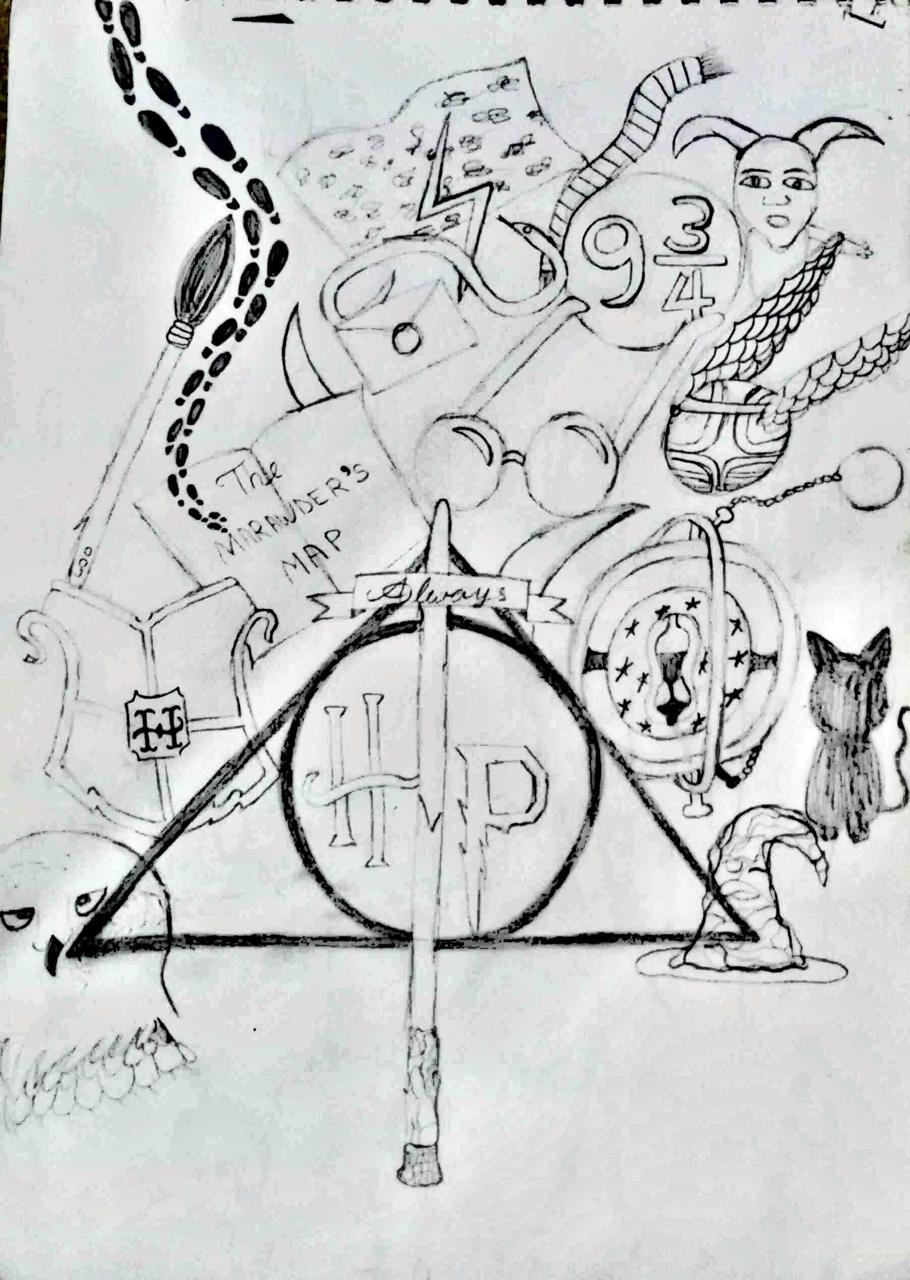 9 3/4
The
MARAUDER'S
MAP
Always
H
HP